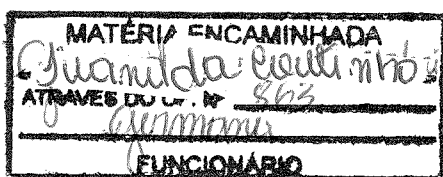 MATÉRIA ENCAMINHADA
Juanilda Coutinho
ATRAVÉS DO OF. Nº 863
FUNCIONÁRIO